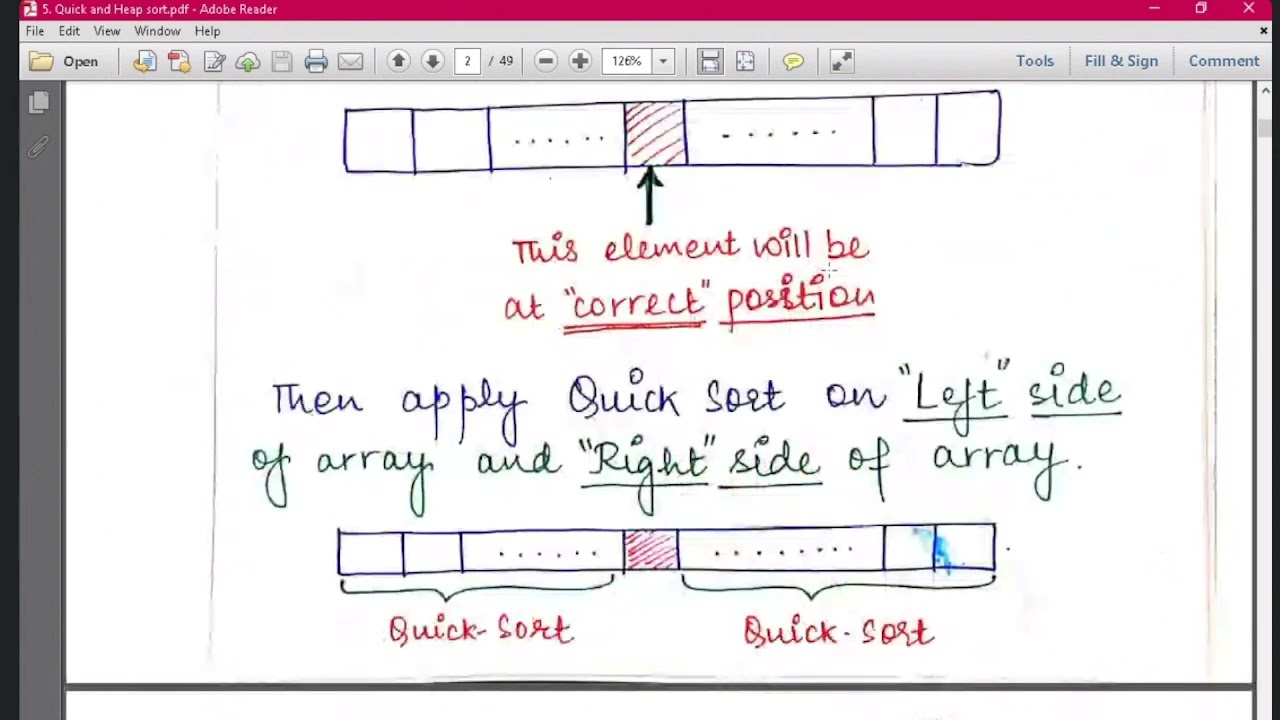 5. Quick and Heap sort.pdf - Adobe Reader
File Edit View Window Help
Open 2 / 49 126% Tools Fill & Sign Comment
This element will be
at "correct" position
Then apply Quick Sort on "Left" side
of array and "Right" side of array.
Quick-Sort Quick-Sort